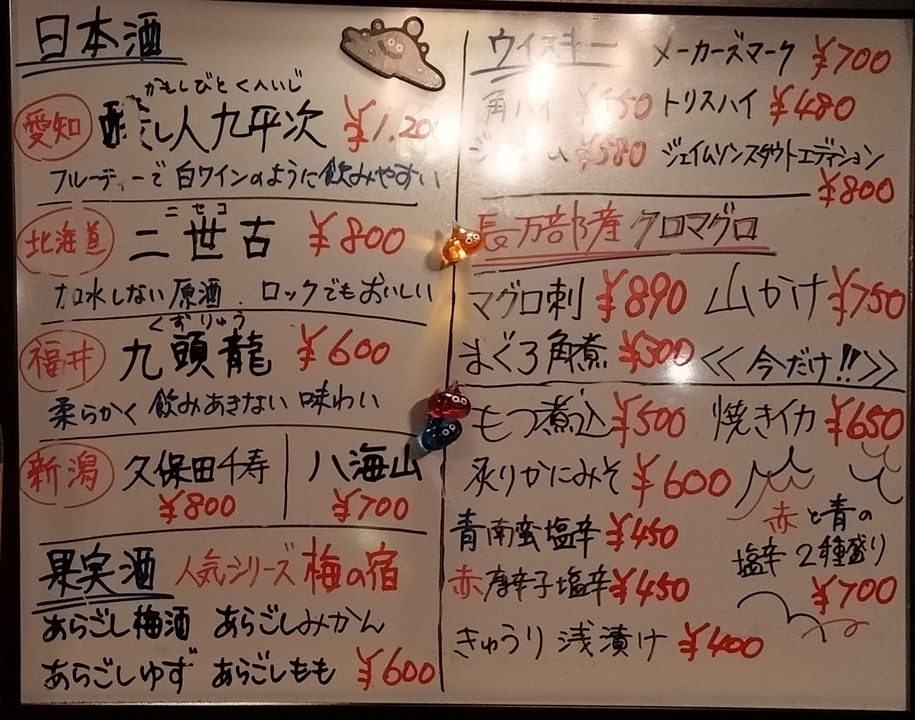 日本酒
かもしびとくへいじ
愛知 醸し人九平次 ¥1.20
フルーティーで白ワインのように飲みやすい
ニセコ
北海道 二世古 ¥800
加水しない原酒. ロックでもおいしい
くずりゅう
福井 九頭龍 ¥600
柔らかく飲みあきない味わい
新潟 久保田千寿 ¥800
八海山 ¥700
果実酒 人気シリーズ 梅の宿
あらごし梅酒 あらごしみかん
あらごしゆず あらごしもも ¥600
ウイスキー メーカーズマーク ¥700
角ハイ ¥550 トリスハイ ¥480
¥580 ジェイムソンスタウトエディション
¥800
長万部産 クロマグロ
マグロ刺 ¥890 山かけ ¥750
まぐろ角煮 ¥500 <<今だけ!!>>
もつ煮込 ¥500 焼きイカ ¥650
炙りかにみそ ¥600
青南蛮塩辛 ¥450
赤唐辛子塩辛 ¥450
きゅうり浅漬け ¥400
赤と青の
塩辛2種盛り
¥700